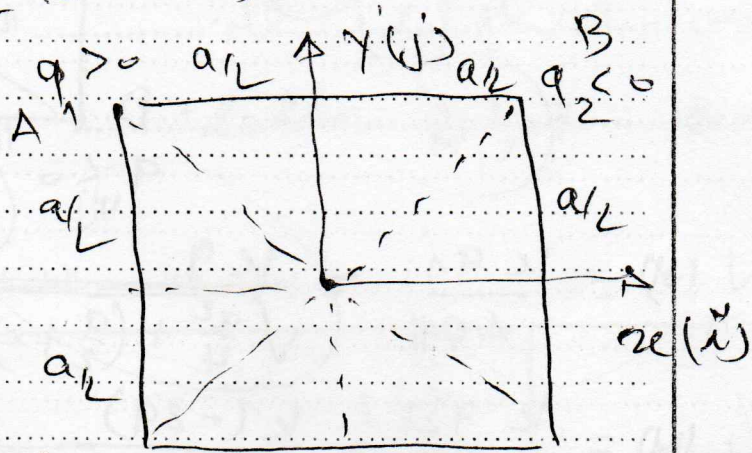 q₁ > 0 a/2 Y(j) a/2 B q₂ < 0
A
a/2 a/2
x(i)
a/2